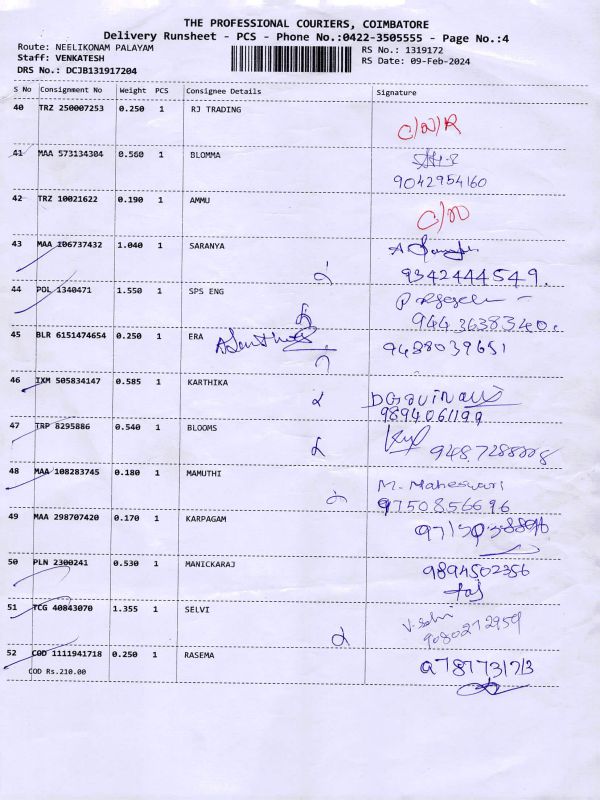 THE PROFESSIONAL COURIERS, COIMBATORE
Delivery Runsheet - PCS - Phone No.:0422-3505555 - Page No.:4
Route: NEELIKONAM PALAYAM
RS No.: 1319172
Staff: VENKATESH
RS Date: 09-Feb-2024
DRS No.: DCJB131917204
S No Consignment No Weight PCS Consignee Details Signature
40 TRZ 250007253 0.250 1 RJ TRADING
C/N/R
41 MAA 573134304 0.560 1 BLOMMA
9042954160
42 TRZ 10021622 0.190 1 AMMU
43 MAA 106737432 1.040 1 SARANYA
9342444549.
44 POL 1340471 1.550 1 SPS ENG
944 3638340.
45 BLR 6151474654 0.250 1 ERA
9488039651
46 IXM 505834147 0.585 1 KARTHIKA
9894061199
47 TRP 8295886 0.540 1 BLOOMS
48 MAA 108283745 0.180 1 MAMUTHI
M. Maheswari
9750856696
49 MAA 298707420 0.170 1 KARPAGAM
50 PLN 2300241 0.530 1 MANICKARAJ
9894502356
51 TCG 40843070 1.355 1 SELVI
V. Selvi
9080272959
52 COD 1111941718 0.250 1 RASEMA
COD Rs.210.00